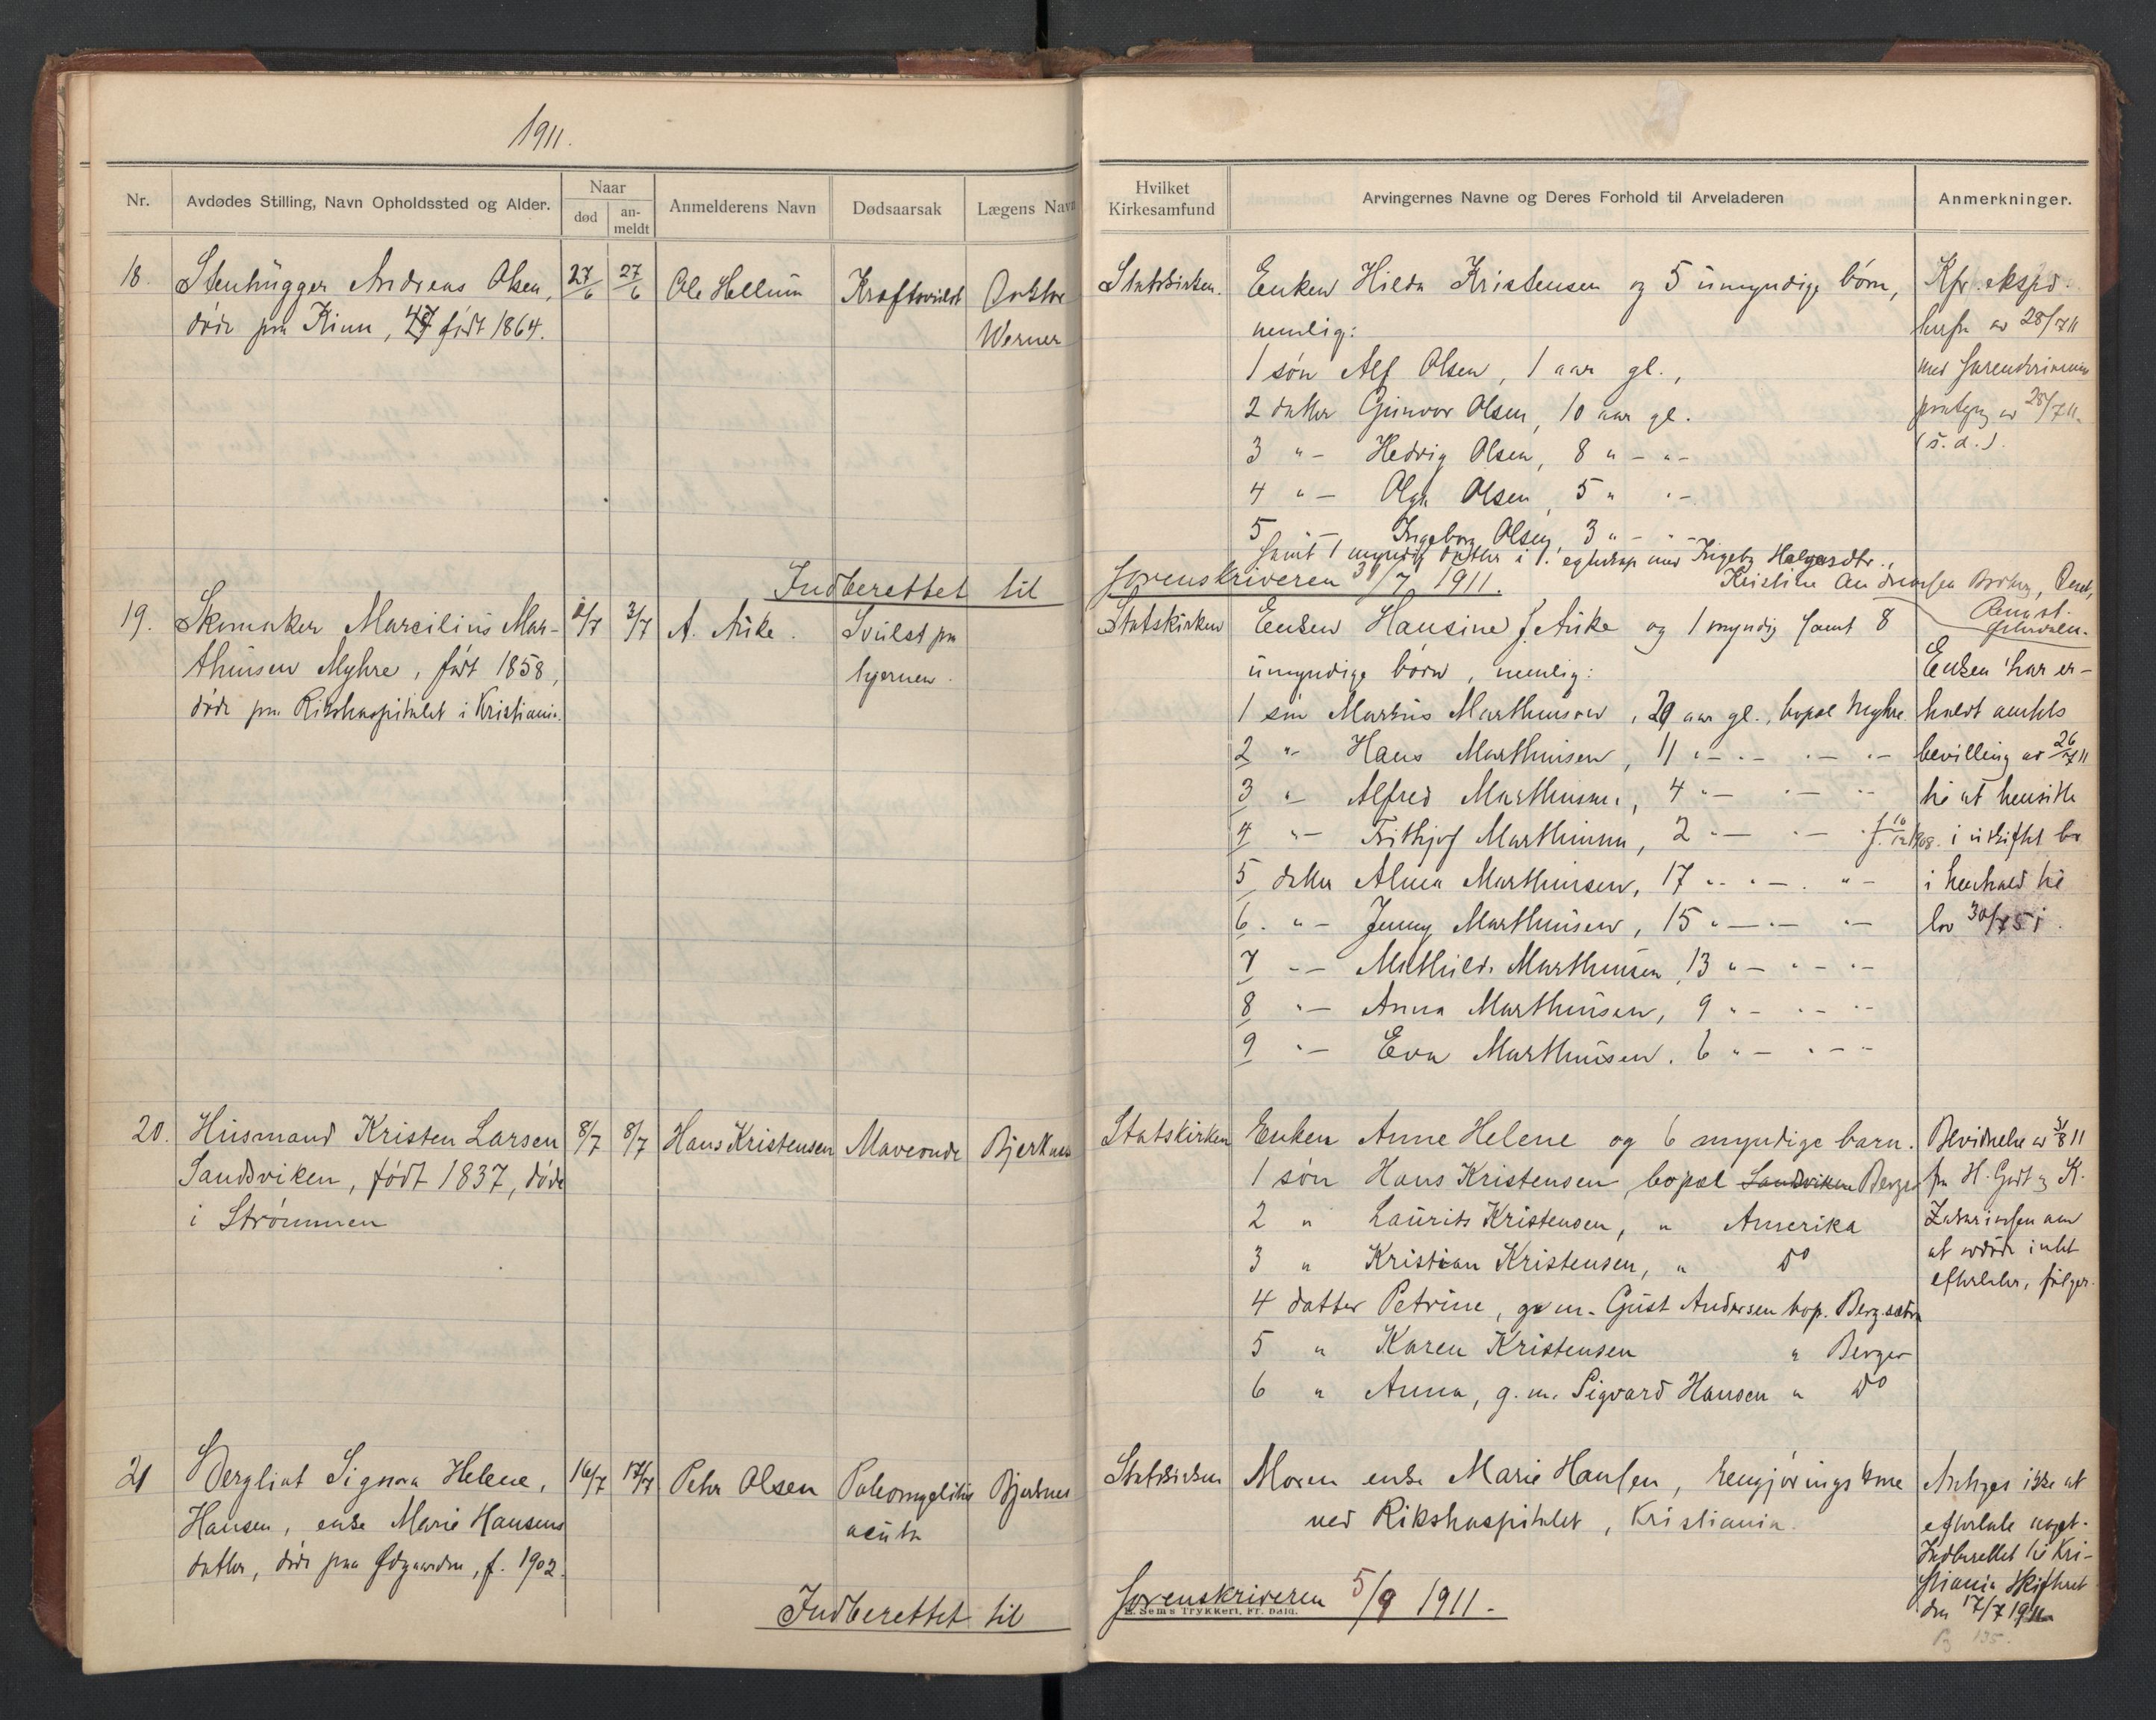 1911.
Nr.
Avdødes Stilling, Navn Opholdssted og Alder.
Naar
død
an-
meldt
Anmelderens Navn
Dødsaarsak
Lægens Navn
18. Stenhugger Andreas Olsen, 27/6 27/6 Ole Hellum Kræftsvulst Doktor
døde paa Kinn, 47 født 1864. Werner
Indberettet til
19. Skomaker Marcilius Mar- 2/7 3/7 A. Auke. Svulst paa
thinsen Myhre, født 1858, hjernen.
døde paa Rikshospitalet i Kristiania.
20. Husmand Kristen Larsen 8/7 8/7 Hans Kristensen Maveonde Bjerknes
Sandviken, født 1837, døde
i Strømmen
21 Bergliot Signora Helene, 16/7 17/7 Peter Olsen Poleomyelitis Bjerknes
Hansen, enke Marie Hansens acuta
datter, døde paa Ødgaarden, f. 1902.
Indberettet til
Hvilket
Kirkesamfund
Arvingernes Navne og Deres Forhold til Arveladeren
Anmerkninger.
Statskirken. Enken Hilda Kristensen og 5 umyndige børn,
nemlig:
1 søn Alf Olsen, 1 aar gl.,
2 datter Gunvor Olsen, 10 aar gl.
3 " - Hedvig Olsen, 8 " - " -
4 " - Olga Olsen, 5 " " -
5 " - Ingeborg Olsen, 3 " - " -
samt 1 myndig datter i 1. egteskap med Ingebg Halvorsdtr.,
Kfr. ekspd.
herfra av 28/7 11
med sorenskriverens
paategng av 28/7 11.
(s. d.).
Sorenskriveren 31/7 1911.
Statskirken Enken Hansine J. Auke og 1 myndig samt 8
umyndige børn, nemlig:
1 søn Markus Marthinsen, 29 aar gl., bopæl Myhre.
2 " - Hans Marthinsen, 11 " - " - " - " -
3 " - Alfred Marthinsen, 4 " - " - " -
4 " - Frithjof Marthinsen, 2 " - " - f. 10/12 1908.
5 datter Alma Marthinsen, 17 " - " - " -
6. " - Jenny Marthinsen, 15 " - " - " -
7 " - Mathilde Marthinsen, 13 " - " - " -
8 " - Anna Marthinsen, 9 " - " - " -
9 " - Eva Marthinsen. 6 " - " - " -
Enken har er-
holdt amtets
bevilling av 26/7 11
til at hensitte
i uskiftet bo
i henhold til
lov 30/7 51.
Statskirken Enken Anne Helene og 6 myndige barn.
1 søn Hans Kristensen bopæl Sandviken Berger
2 " Laurits Kristensen, " Amerika
3 " Kristian Kristensen, " do
4 datter Petrine, g m. Gust Andersen bop. Bergsætra
5 " Karen Kristensen " Berger
6 " Anna, g. m. Sigvard Hansen " do
Bevidnelse av 3/8 11
fra H. Godt og K.
Zakariassen om
at avdøde intet
efterlater, følger.
Statskirken Moren enke Marie Hansen, rengjøringskone
ved Rikshospitalet, Kristiania.
Antages ikke at
efterlate noget.
Indberettet til Kri-
stiania Skifteret
den 17/7 1911
Sorenskriveren 5/9 1911.
E. Sem's Trykkeri, Fr.hald.